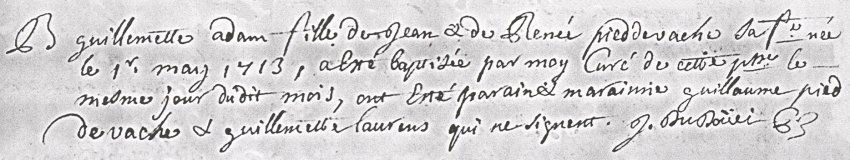 B guillemette adam fille de Jean & de Renée pieddevache sa fe née
le 1r. mars 1713, a esté baptisée par moy Curé de cette psse le
mesme jour dudit mois, ont esté parain & marainne guillaume pied
devache & guillemette laurens qui ne signent.